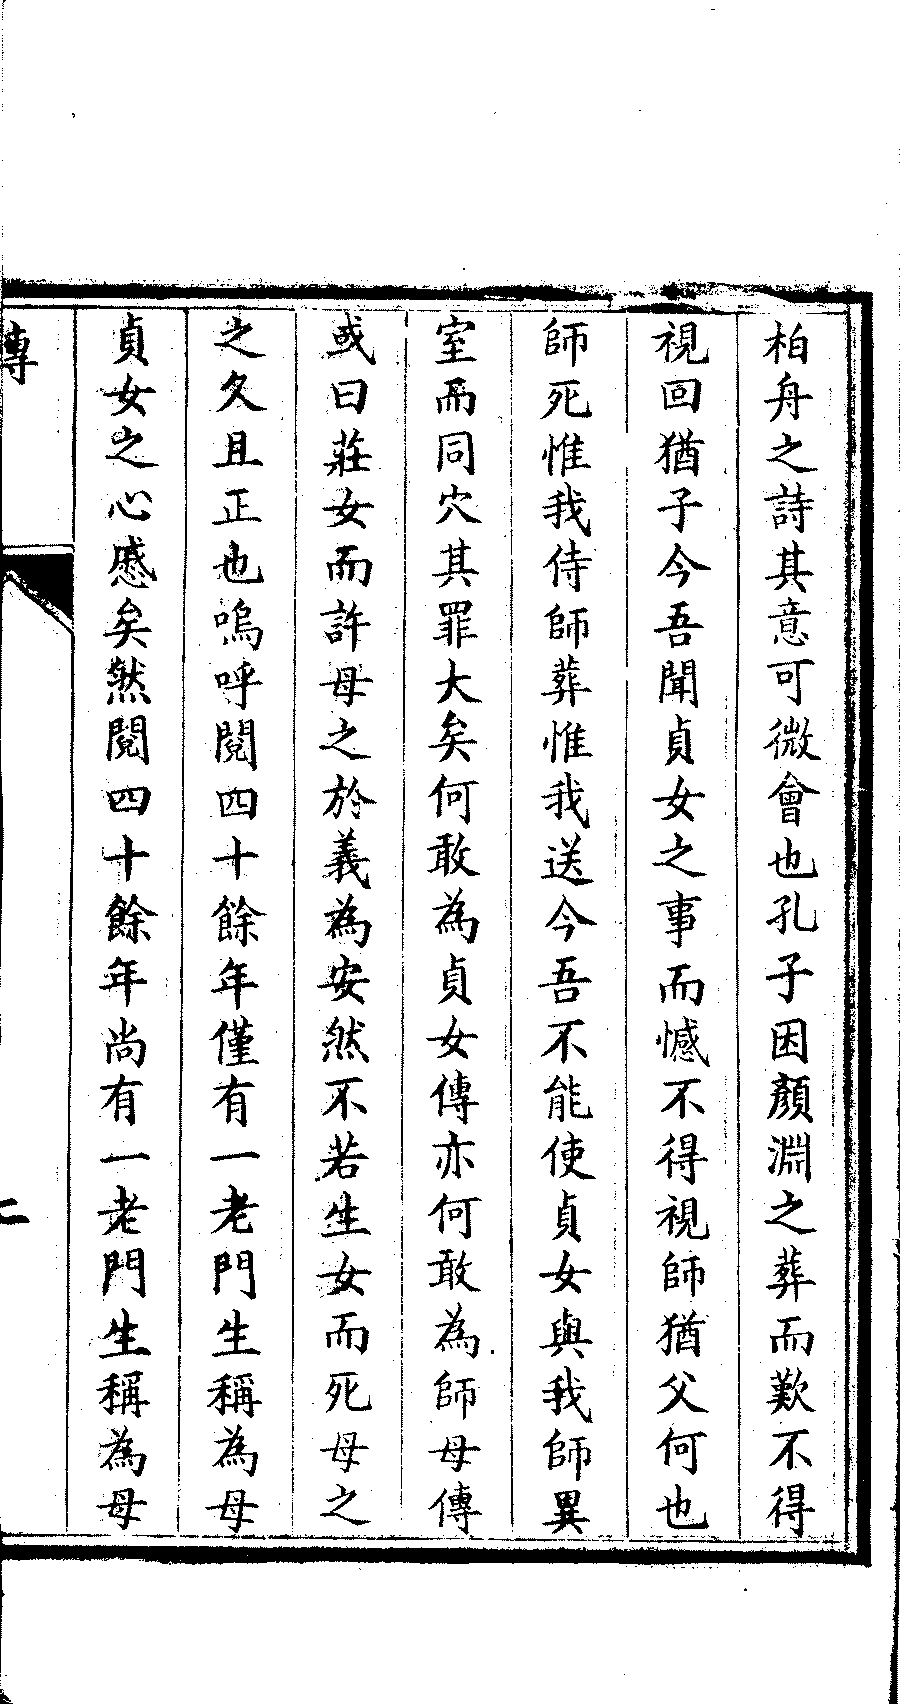 柏舟之詩其意可微會也孔子因顏淵之葬而歎不得
視回猶子今吾聞貞女之事而憾不得視師猶父何也
師死惟我侍師葬惟我送今吾不能使貞女與我師異
室而同穴其罪大矣何敢為貞女傳亦何敢為師母傳
或曰莊女而許母之於義為安然不若生女而死母之
之久且正也嗚呼閱四十餘年僅有一老門生稱為母
貞女之心慼矣然閱四十餘年尚有一老門生稱為母
傳